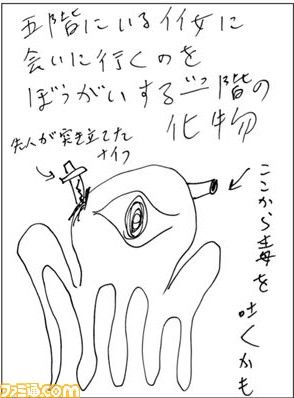 五階にいる彼女に
会いに行くのを
ぼうがいする三階の
化物
先人が突き立てた
ナイフ
ここから毒を吐くかも
ファミ通.com